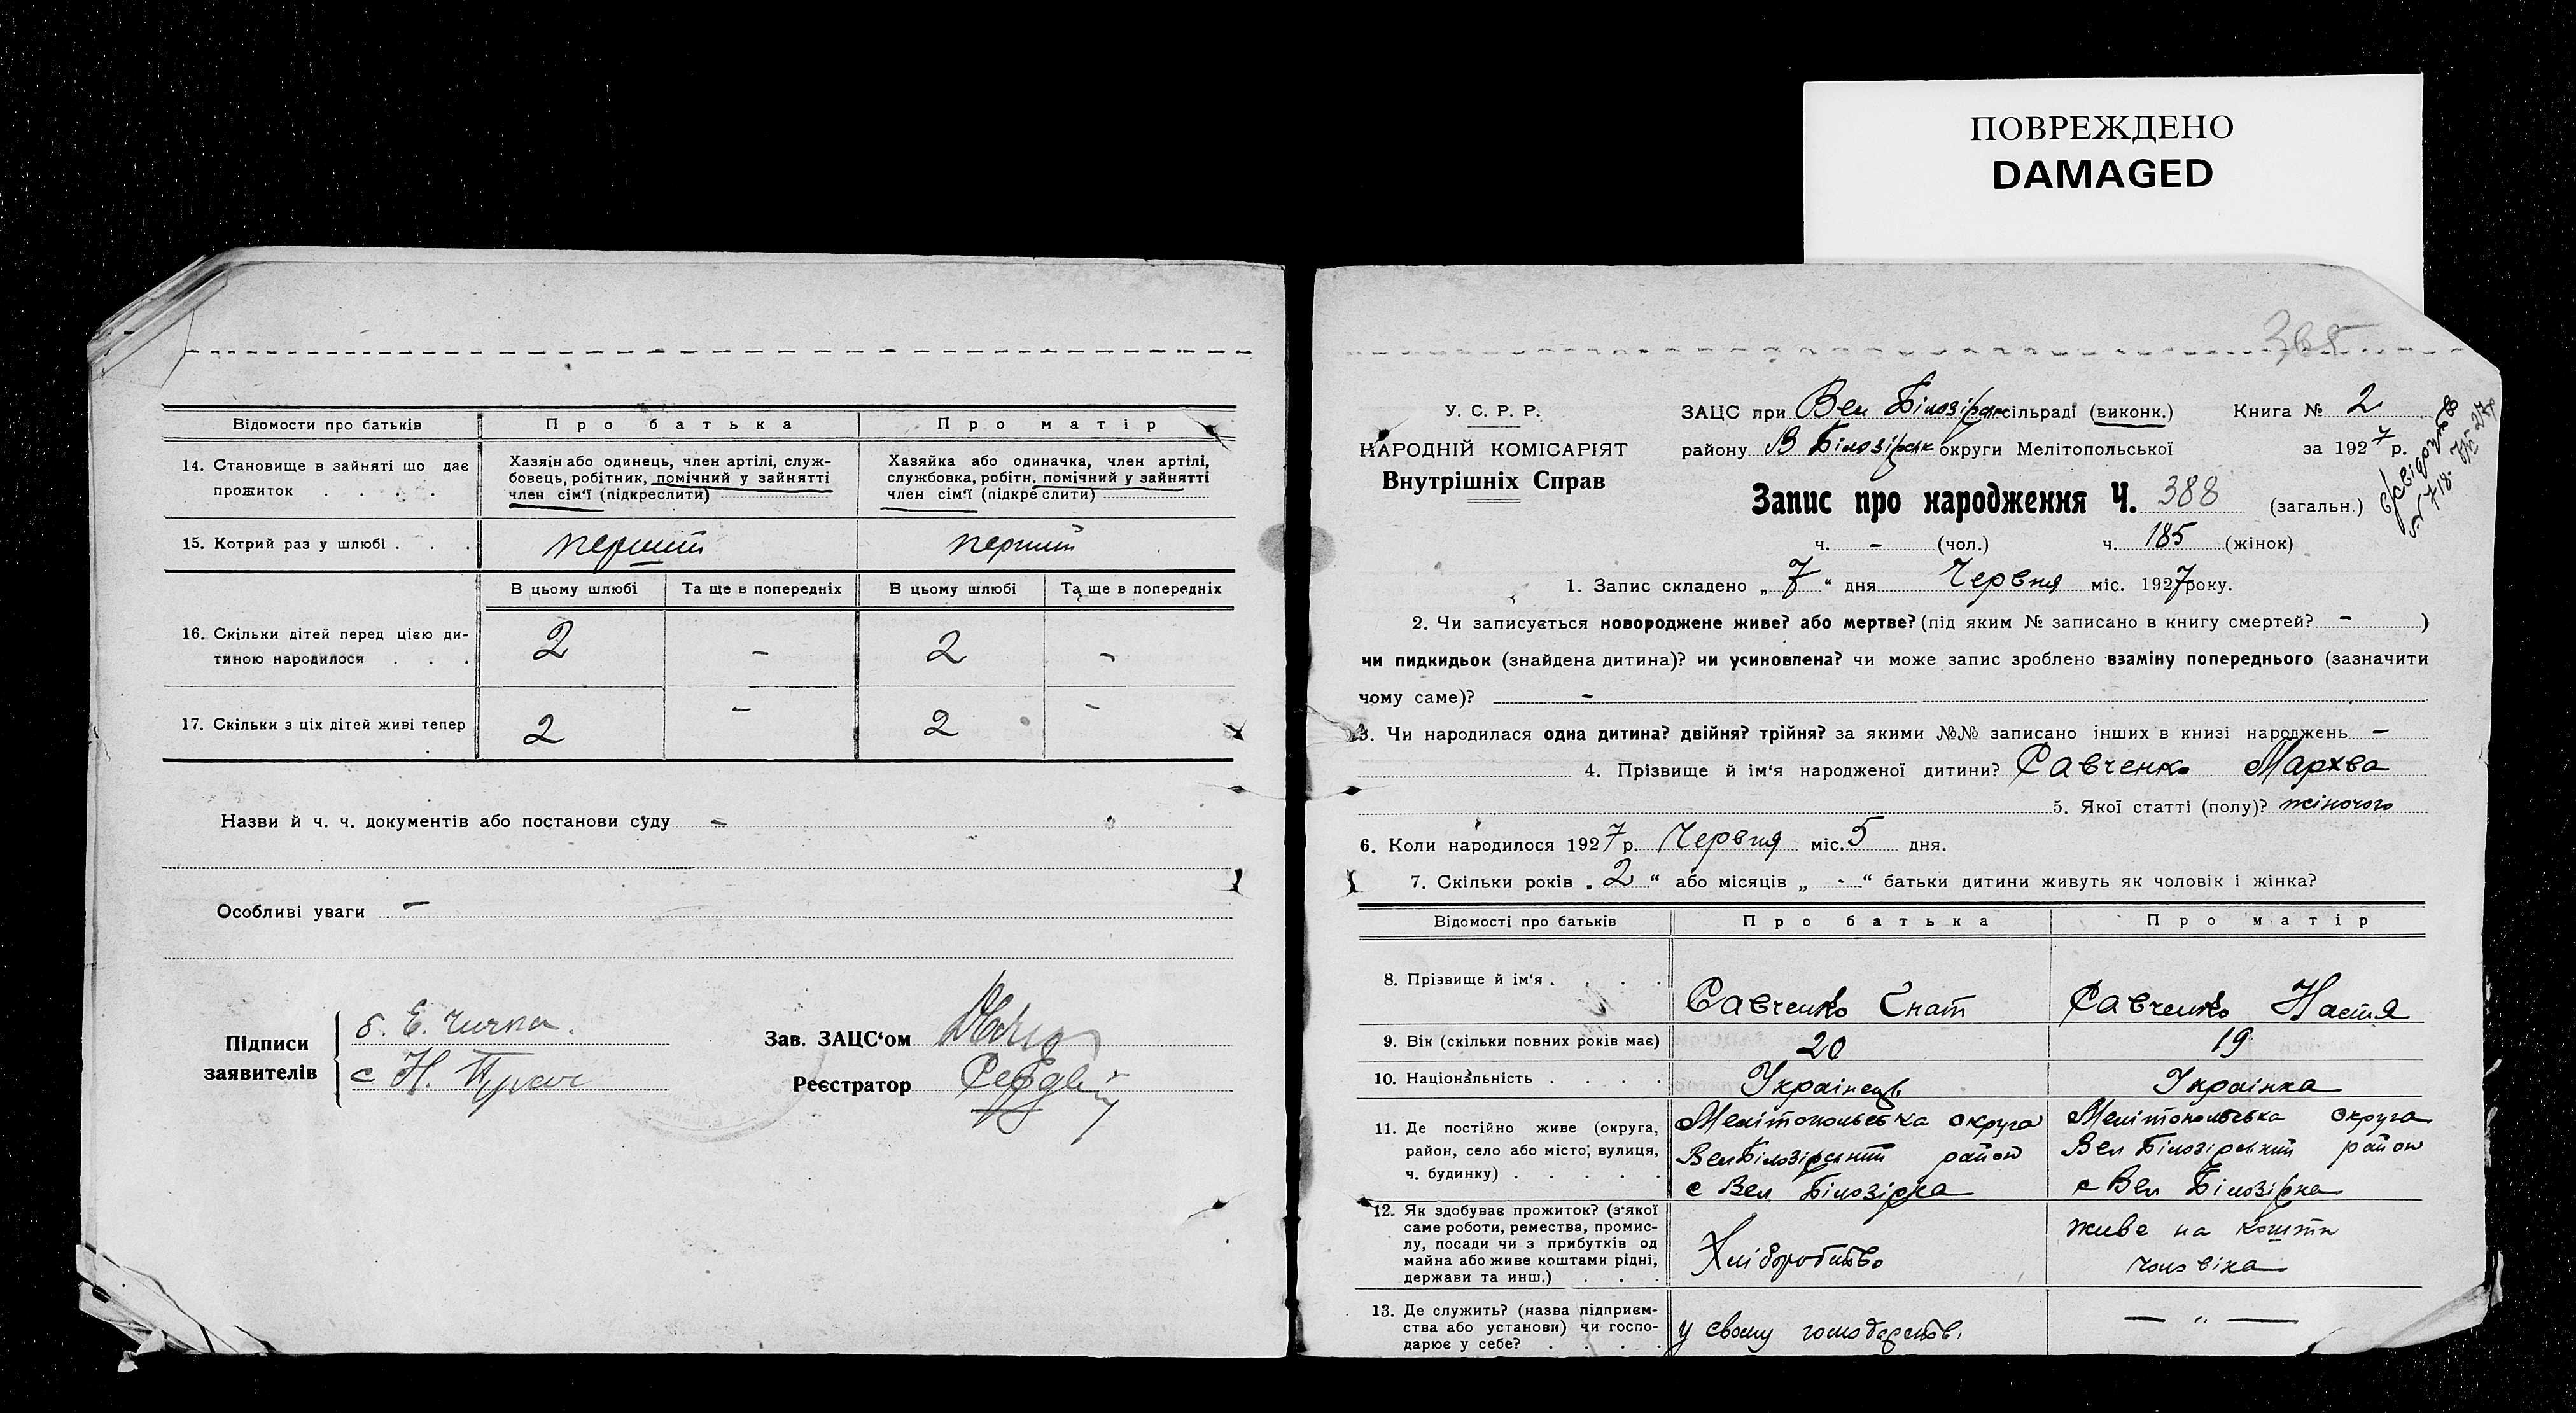 ПОВРЕЖДЕНО
DAMAGED
Відомости про батьків
Про батька
Про матір
14. Становище в зайняті що дає прожиток . . . .
Хазяін або одинець, член артілі, служ-
бовець, робітник, помічний у зайнятті
член сім'ї (підкреслити)
Хазяйка або одиначка, член артілі,
службовка, робітн. помічний у зайнятті
член сім'ї (підкреслити)
15. Котрий раз у шлюбі . . .
перший
перший
В цьому шлюбі
Та ще в попередніх
В цьому шлюбі
Та ще в попередніх
16. Скільки дітей перед цією ди-
тиною народилося . . .
2 - 2 -
17. Скільки з ціх дітей живі тепер
2 - 2 -
Назви й ч. ч. документів або постанови суду -
Особливі уваги -
Підписи
заявителів
б. Е.
с Н.
Зав. ЗАЦС'ом
Реєстратор
368
У. С. Р. Р.
НАРОДНІЙ КОМІСАРІЯТ
Внутрішніх Справ
ЗАЦС при Вел Білозірск сільраді (виконк.) Книга № 2
району В Білозірск округи Мелітопольської за 1927 р.
№ 718
Запис про народження Ч. 388 (загальн.)
ч. - (чол.) ч. 185 (жінок)
1. Запис складено „ 7 “ дня Червня міс. 1927 року.
2. Чи записується новороджене живе? або мертве? (під яким № записано в книгу смертей? - )
чи пидкидьок (знайдена дитина)? чи усиновлена? чи може запис зроблено взаміну попереднього (зазначити
чому саме)? -
3. Чи народилася одна дитина? двійня? трійня? за якими №№ записано інших в книзі народжень -
4. Прізвище й ім'я народженої дитини? Савченко Мархва
5. Якої статті (полу)? жіночого
6. Коли народилося 1927 р. Червня міс. 5 дня.
7. Скільки років „ 2 “ або місяців „ - “ батьки дитини живуть як чоловік і жінка?
Відомості про батьків
Про батька
Про матір
8. Прізвище й ім'я . . . .
Савченко Гнат
Савченко Настя
9. Вік (скільки повних років має)
20
19
10. Національність . . . .
Українець
Українка
11. Де постійно живе (округа,
район, село або місто; вулиця,
ч. будинку) . . . . .
Мелітопольська округа
Вел Білозірський район
с Вел Білозірка
Мелітопольська округа
Вел Білозірський район
с Вел Білозірка
12. Як здобуває прожиток? (з'якої
саме роботи, ремества, промис-
лу, посади чи з прибутків од
майна або живе коштами рідні,
держави та инш.) . . .
Хліборобство
живе на кошти
чоловіка
13. Де служить? (назва підприєм-
ства або установи) чи госпо-
дарює у себе? . . . .
у свому господарстві
— „ —